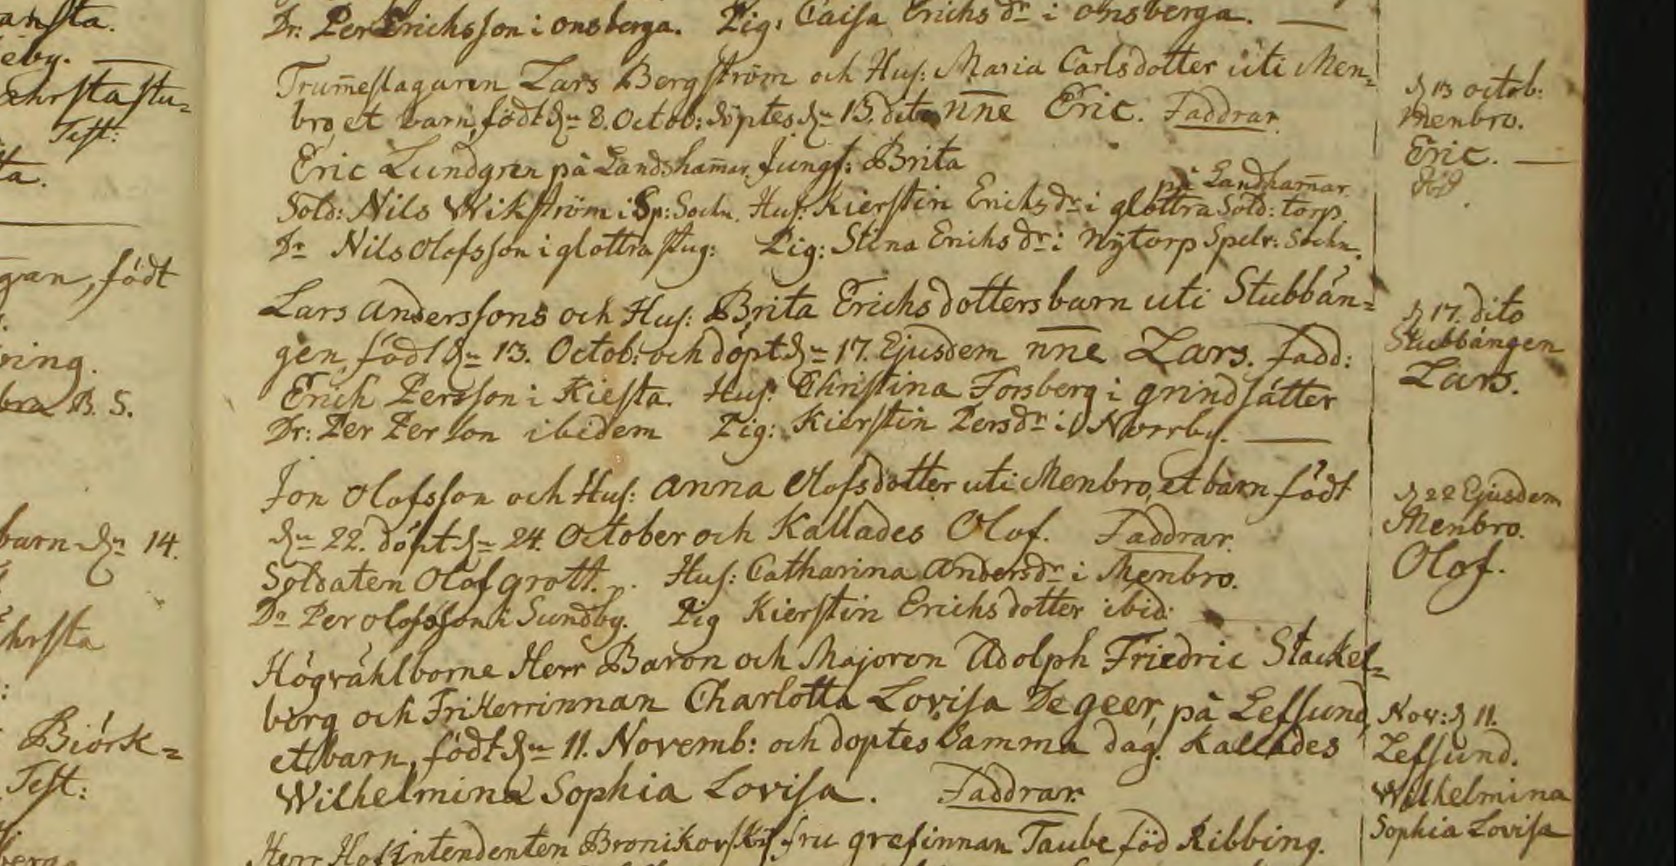 ansta.
eby.
ehrstastu=
Test:
ta.
gan, födt
ning.
bra B. S.
barn dn 14.
ehrsta
Biörk=
Test:
berga
Dr: Per Erichsson i onsberga. Pig: Caisa Erichs dr i onsberga.
Trum̅eslagaren Lars Bergström och Hus: Maria Carlsdotter uti Men=
bro, et barn, födt dn 8. Octob: döptes dn 13. dito nne Eric. Faddrar.
Eric Lundgren på Landsham̅ar. Jungf: Brita
på Landham̅ar.
Sold: Nils Wikström i Sp: Sochn. Hus: Kierstin Erichs dr i glottra Sold: torp.
Dr Nils Olofsson i glottra stug: Pig: Stina Erichs dr i Nÿtorp Spelv: Sochn.
Lars Anderssons och Hus: Brita Erichsdotters barn uti Stubbän=
gen, födt dn 13. Octob: och döpt dn 17. Ejusdem nne Lars. Fadd:
Erich Persson i Kiesta. Hus: Christina Forsberg i grindsätter
Dr: Per Person ibidem Pig: Kierstin Persdr i Norrby.
Jon Olofsson och Hus: Anna Olofsdotter uti Menbro, et barn födt
dn 22. döpt dn 24. October och Kallades Olof. Faddrar.
Soldaten Olof grott. Hus: Catharina Andersdr i Menbro.
Dr Per olofsson i Sundby. Pig Kierstin Erichsdotter ibid:
Högwählborne Herr Baron och Majoren Adolph Friedric Stackel=
berg och Friherrinnan Charlotta Lovisa Degeer, på Lefsund,
et barn, födt dn 11. Novemb: och döptes Samma dag. Kallades
Wilhelmina Sophia Lovisa. Faddrar.
Herr Hofintendenten Bronikovski fru grefinnan Taube föd Ribbing.
d 13 octob:
Menbro.
Eric.
död.
d 17. dito
Stubbängen
Lars.
d 22 Ejusdem
Menbro.
Olof.
Nov: d 11.
Lefsund.
Wilhelmina
Sophia Lovisa